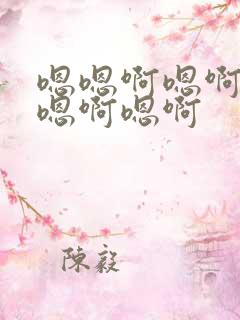 嗯嗯啊嗯啊
嗯啊嗯啊
陳毅